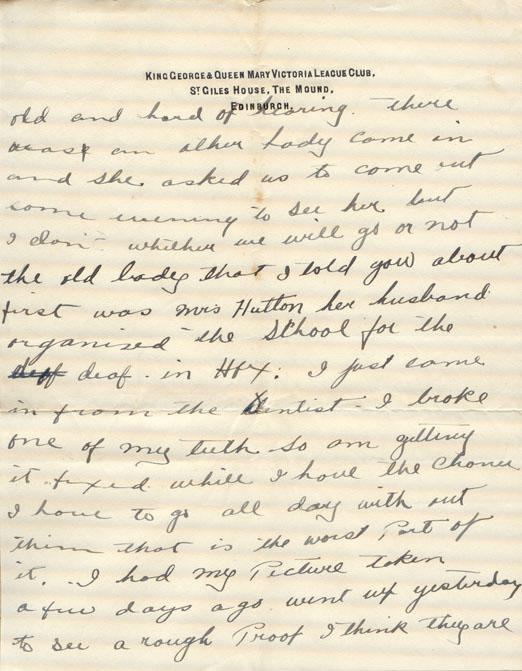 KING GEORGE & QUEEN MARY VICTORIA LEAGUE CLUB,
ST GILES HOUSE, THE MOUND,
EDINBURGH.
old and hard of hearing. There
an other Lady came in
and she asked us to come out
some evening to see her but
I don whether we will go or not
the old lady that I told you about
first was Mrs Hutton her husband
organised the School for the
deaf in Hfx. I just came
in from the Dentist. I broke
one of my teeth so am getting
it fixed while I have the chance
I have to go all day with out
them that is the worst Part of
it. I had my Picture taken
a few days ago went up yesterday
to see a rough Proof I think they are